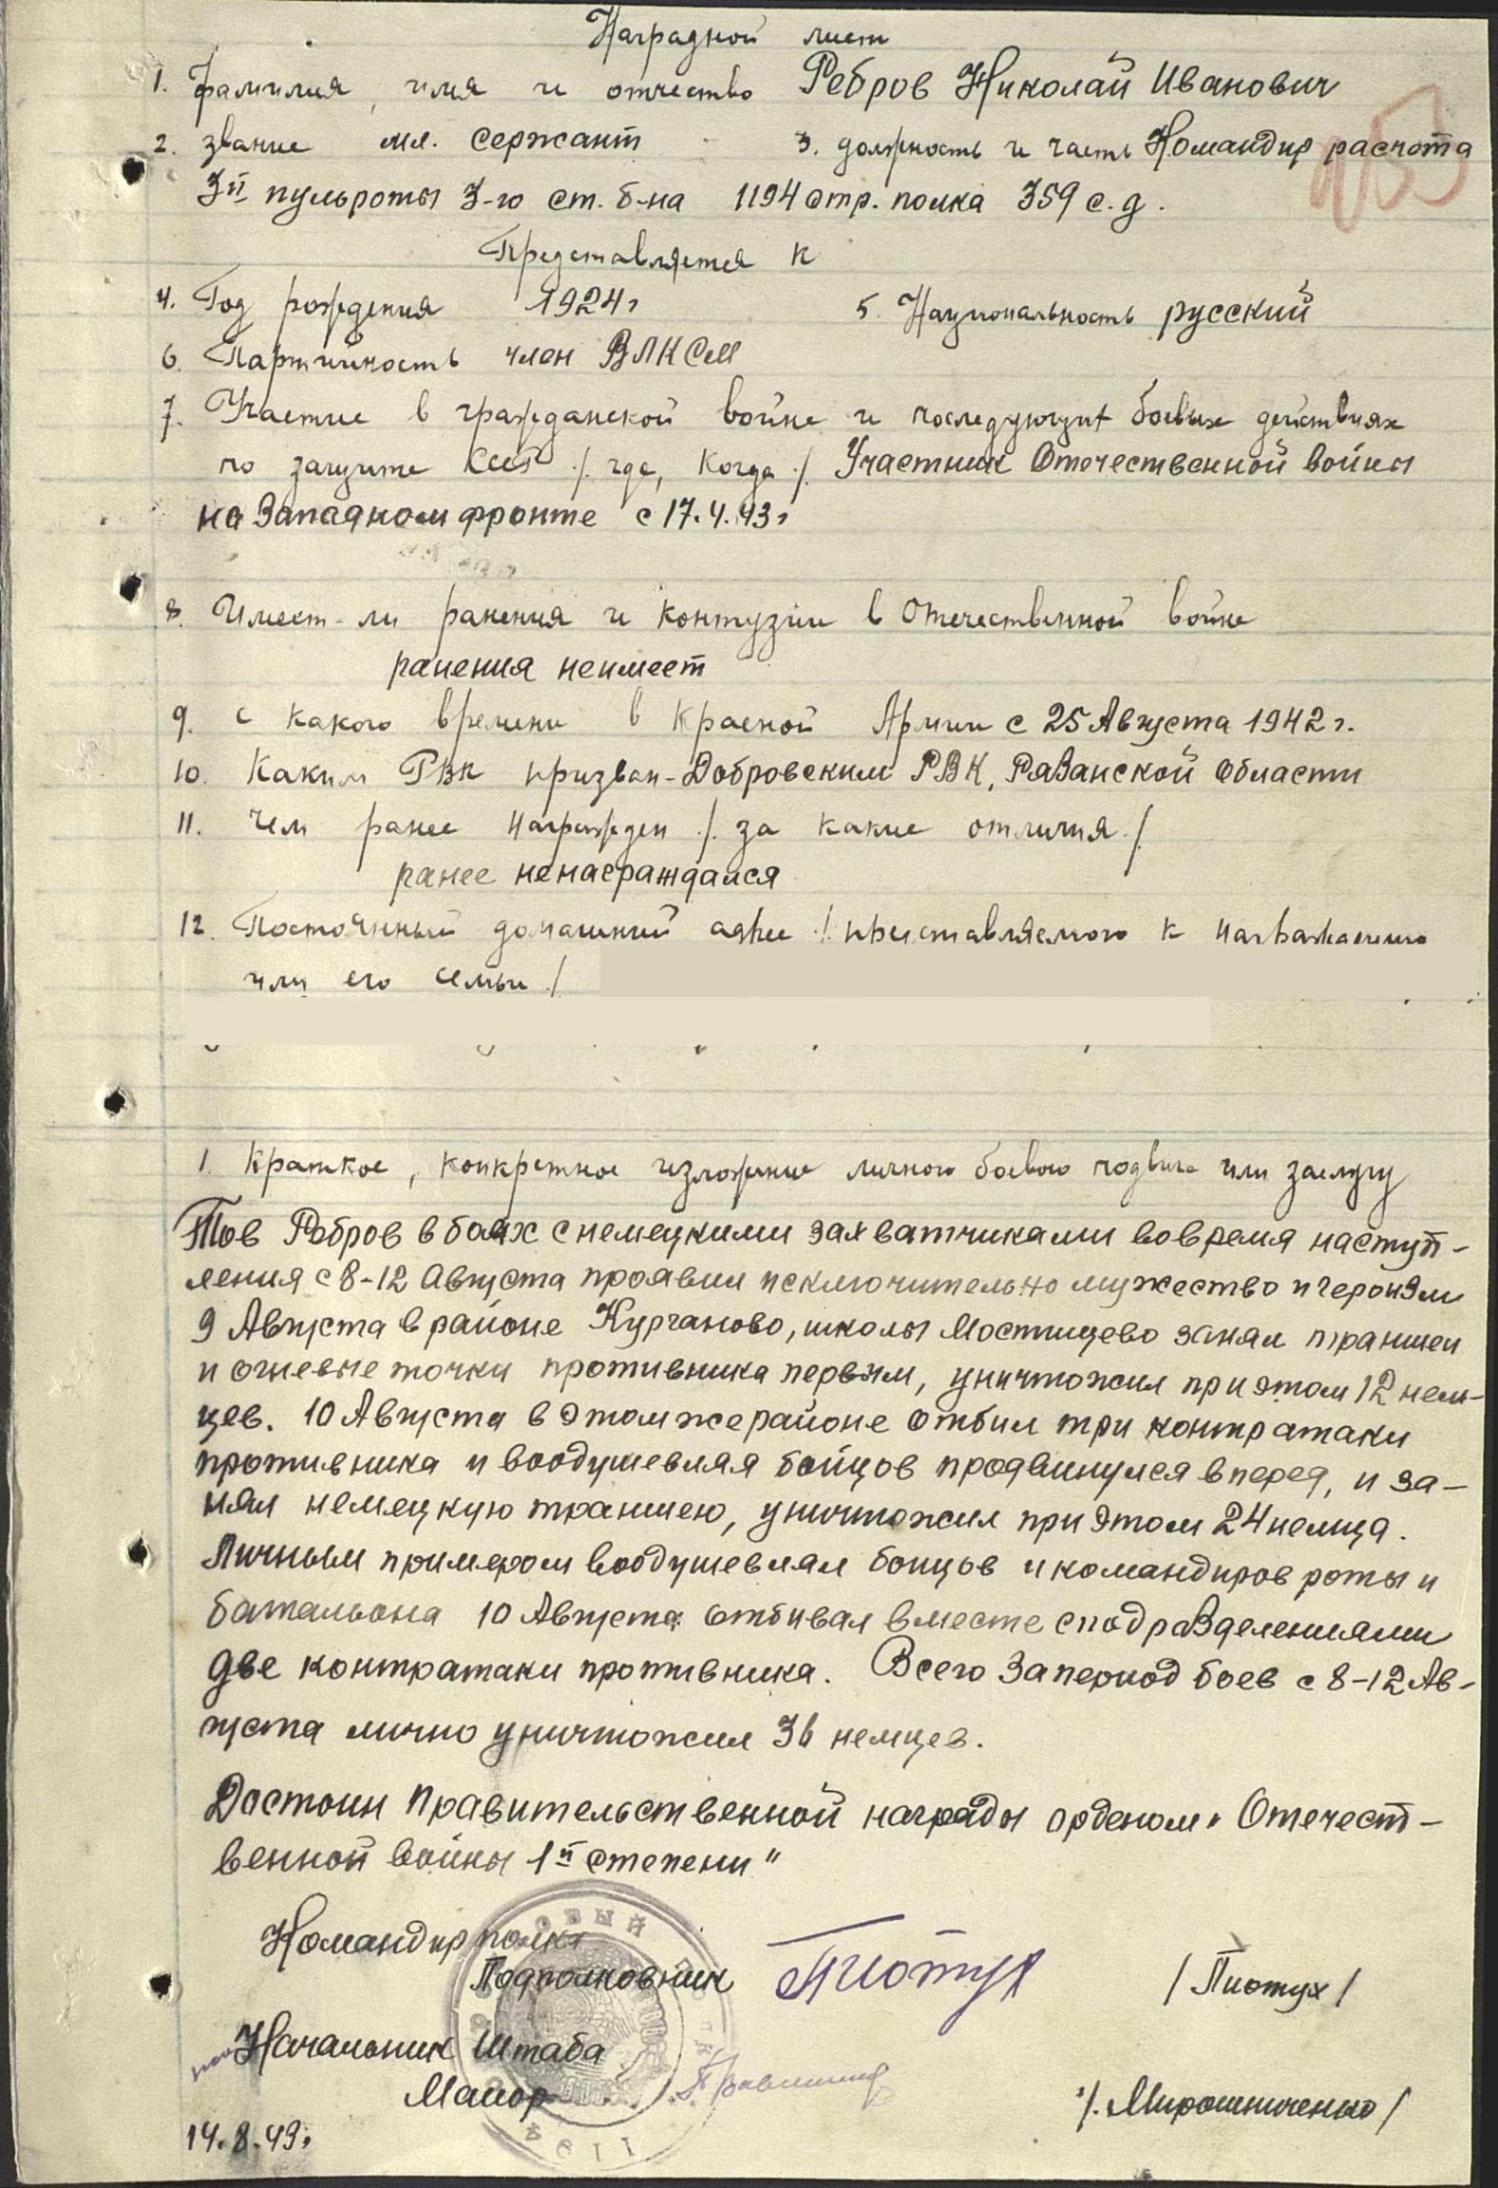 Наградной лист
1. Фамилия, имя и отчество Ребров Николай Иванович
2. звание мл. сержант 3. должность и часть Командир расчота
3й пульроты 3-го ст. б-на 1194 стр. полка 359 с. д.
Представляется к
4. Год рождения 1924г 5. Национальность русский
6. Партийность член ВЛКСМ
7. Участие в гражданской войне и последующих боевых действиях
по защите СССР /. где, когда ./ Участник Отечественной войны
на Западном фронте с 17.4.43г
8. Имеет-ли ранения и контузии в Отечественной войне
ранения неимеет
9. с какого времени в Красной Армии с 25 Августа 1942г.
10. Каким РВК призван - Добровским РВК, Рязанской области
11. Чем ранее награжден /. за какие отличия ./
ранее ненаграждался
12. Постоянный домашний адрес /. представляемого к награждению
или его семьи /
1. Краткое, конкретное изложение личного боевого подвига или заслуг
Тов Ребров в боях с немецкими захватчиками вовремя наступ-
ления с 8-12 Августа проявил исключительно мужество и героизм
9 Августа в районе Курганово, школы Мостищево занял траншеи
и огневые точки противника первым, уничтожил при этом 12 нем-
цев. 10 Августа в этом же районе отбил три контратаки
противника и воодушевляя бойцов продвинулся вперед, и за-
нял немецкую траншею, уничтожил при этом 24 немца.
Личным примером воодушевлял бойцов и командиров роты и
батальона 10 Августа отбивал вместе с подразделениями
две контратаки противника. Всего за период боев с 8-12 Ав-
густа лично уничтожил 36 немцев.
Достоин Правительственной награды орденом "Отечест-
венной войны 1й степени"
Командир полка
Подполковник Пиотух / Пиотух /
Начальник Штаба
Маиор /. Мирошниченко /
14.8.43г.
1194